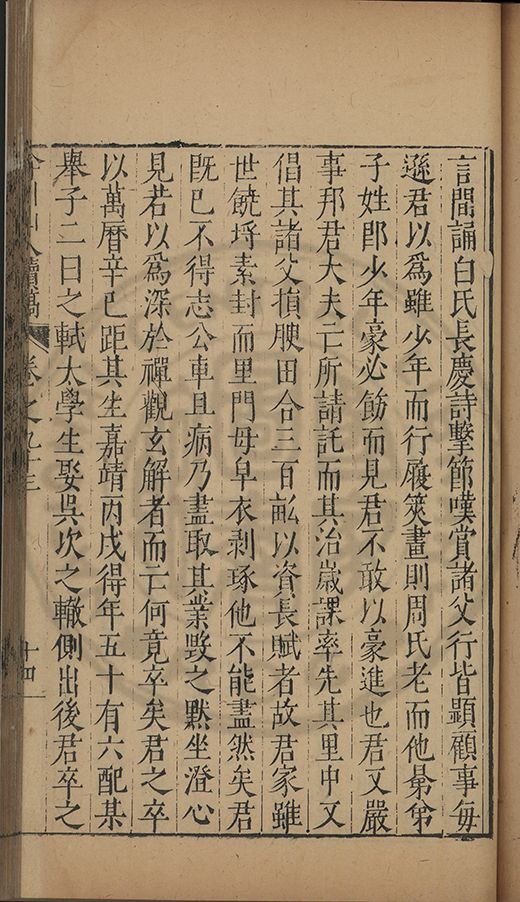 言間誦白氏長慶詩擊節嘆賞諸父行皆顯顧事毎
遜君以爲雖少年而行履筴畫則周氏老而他昜弟
子姓郎少年豪必飭而見君不敢以豪進也君又嚴
事邦君大夫亡所請託而其治嵗課率先其里中又
倡其諸父損腴田合三百畝以資長賦者故君家雖
世饒埒素封而里門毋皁衣剥琢他不能盡然矣君
旣已不得志公車且病乃盡取其業毀之黙坐澄心
見若以爲深於禪觀玄解者而亡何竟卒矣君之卒
以萬曆辛巳距其生嘉靖丙戌得年五十有六配某
舉子二曰之軾太學生娶吳次之轍側出後君卒之
弇州山人續稿
卷之九十三
十四